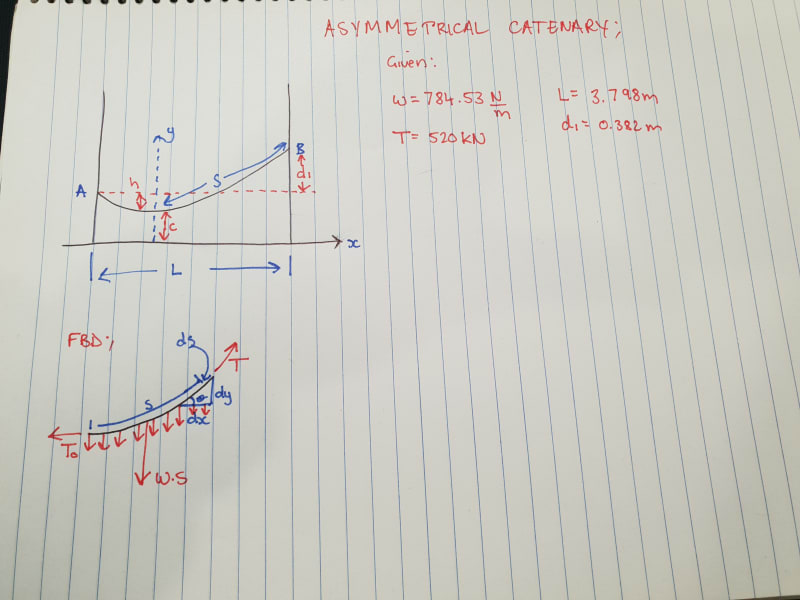 ASYMMETRICAL CATENARY;
Given:
w = 784.53 N/m L = 3.798m
T = 520 KN d₁ = 0.382 m
y
B
h
S
d₁
A
c
x
L
FBD;
ds
T
S
θ
dy
dx
T₀
W.S